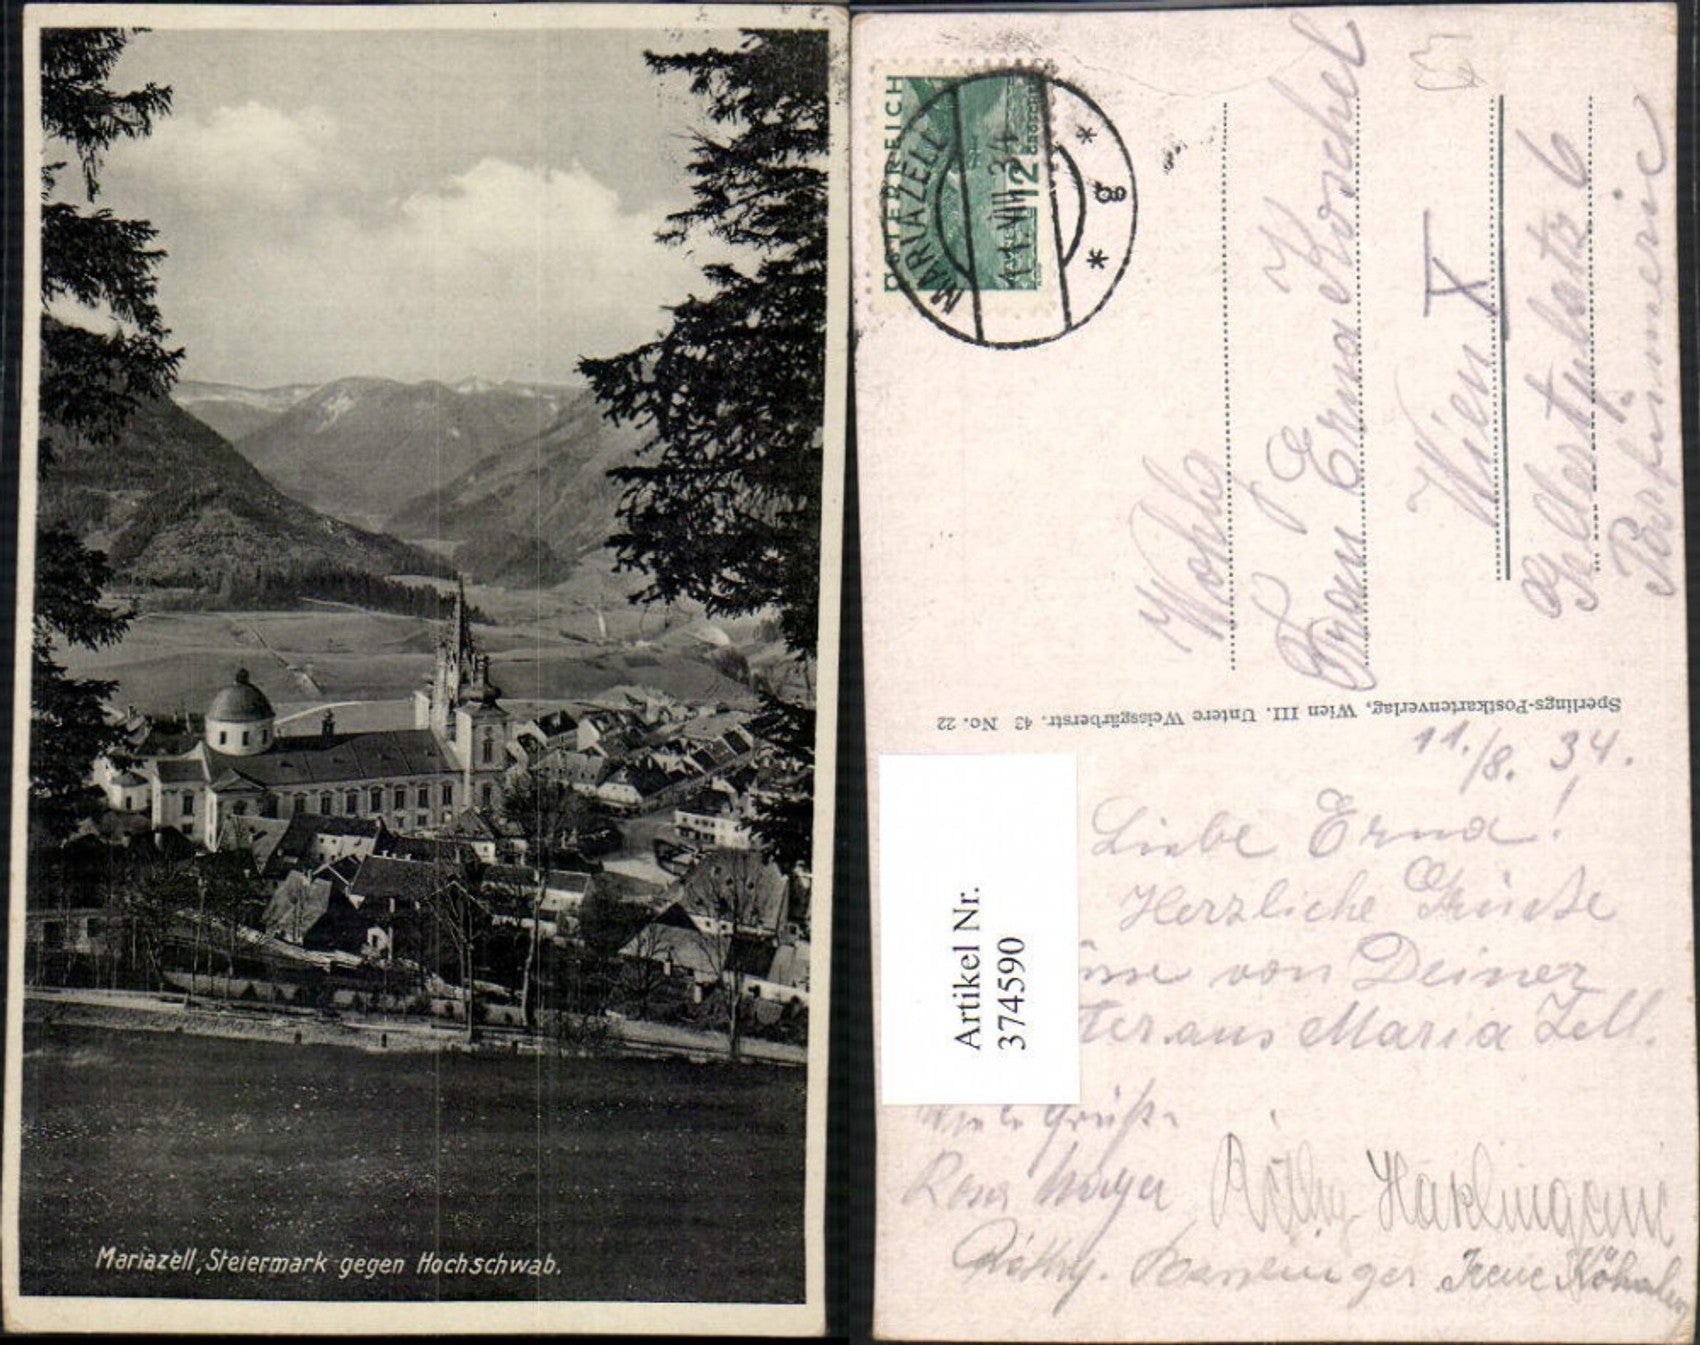 Mariazell, Steiermark gegen Hochschwab.
ÖSTERREICH
12
GROSCHEN
MARIAZELL
11.VIII.34
* g *
Wohlg
Frau Erna Koschel
Wien X
Gellertplatz 6
Parfümerie
Sperlings-Postkartenverlag, Wien III. Untere Weissgärberstr. 43 No. 22
11./8. 34.
Liebe Erna!
Herzliche Grüße
von Deiner
aus Maria Zell.
Viele Grüße
Rosa Mayer
Irene
Artikel Nr.
374590